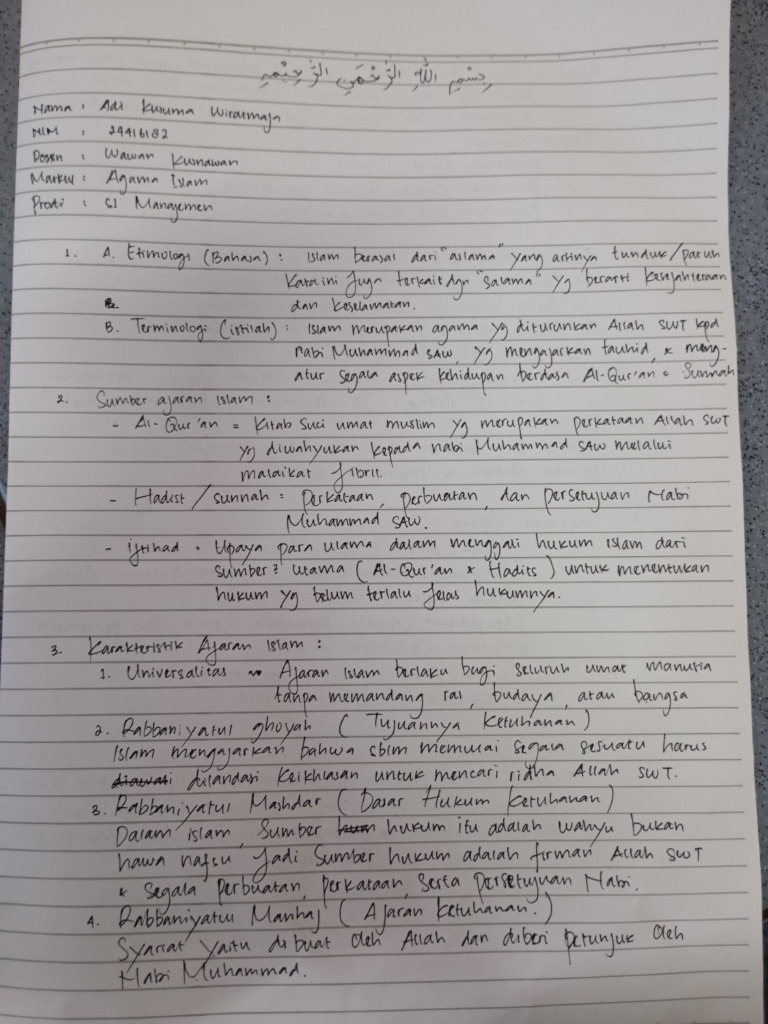 بِسْمِ اللّٰهِ الرَّحْمٰنِ الرَّحِيْمِ
Nama : Adi Kusuma Wiraatmaja
NIM : 24416182
Dosen : Wawan Kusnawan
Matkul : Agama Islam
Prodi : S1 Manajemen
1. A. Etimologi (Bahasa) : Islam berasal dari "aslama" yang artinya tunduk/patuh
Kata ini juga terkait dgn "salama" yg berarti kesejahteraan
dan keselamatan.
B. Terminologi (istilah) : Islam merupakan agama yg diturunkan Allah SWT kpd
nabi Muhammad SAW, yg mengajarkan tauhid, & meng-
atur segala aspek kehidupan berdasa Al-Qur'an & Sunnah
2. Sumber ajaran Islam :
- Al-Qur'an = Kitab Suci umat muslim yg merupakan perkataan Allah SWT
yg diwahyukan kepada nabi Muhammad SAW melalui
malaikat Jibril.
- Hadist / sunnah = perkataan, perbuatan, dan persetujuan Nabi
Muhammad SAW.
- ijtihad = Upaya para ulama dalam menggali hukum islam dari
sumber² utama (Al-Qur'an & Hadits) untuk menentukan
hukum yg belum terlalu jelas hukumnya.
3. Karakteristik Ajaran Islam :
1. Universalitas ~ Ajaran Islam berlaku bagi seluruh umat manusia
tanpa memandang ras, budaya, atau bangsa
2. Rabbaniyatul ghoyah (Tujuannya Ketuhanan)
Islam mengajarkan bahwa sblm memulai segala sesuatu harus
diawali dilandasi Keikhlasan untuk mencari ridha Allah SWT.
3. Rabbaniyatul Mashdar (Dasar Hukum Ketuhanan)
Dalam islam, Sumber hum hukum itu adalah wahyu bukan
hawa nafsu Jadi Sumber hukum adalah firman Allah SWT
& segala perbuatan, perkataan, serta persetujuan Nabi.
4. Rabbaniyatul Manhaj (Ajaran Ketuhanan.)
Syariat yaitu dibuat oleh Allah dan diberi petunjuk oleh
Nabi Muhammad.